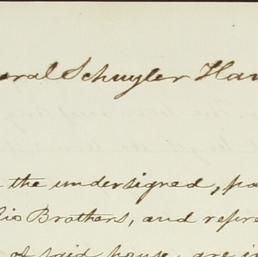 eral Schuyler Ham
the undersigned, pa
Brothers, and repre
of said house, are in